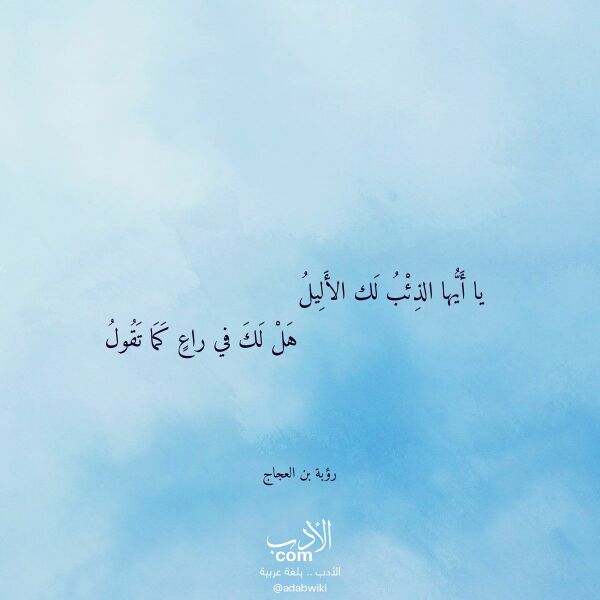 يا أَيُّها الذِئْبُ لَك الأَلِيلُ
هَلْ لَكَ في راعٍ كَمَا تَقُولُ
رؤبة بن العجاج
الأدب
com
الأدب .. بلغة عربية
@adabwiki